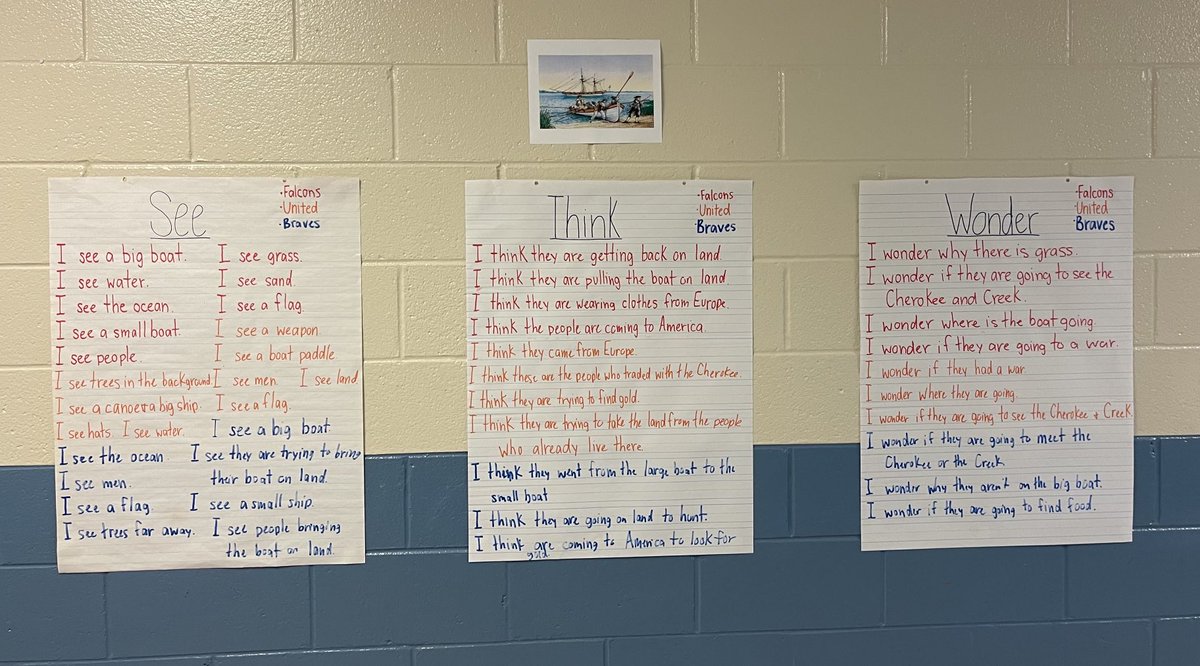 See
·Falcons
·United
·Braves
I see a big boat. I see grass.
I see water. I see sand.
I see the ocean. I see a flag.
I see a small boat. I see a weapon.
I see people. I see a boat paddle.
I see trees in the background I see men. I see land
I see a canoe + a big ship. I see a flag.
I see hats. I see water. I see a big boat
I see the ocean. I see they are trying to bring
their boat on land.
I see men.
I see a flag. I see a small ship.
I see trees far away. I see people bringing
the boat on land.
Think
·Falcons
·United
·Braves
I think they are getting back on land.
I think they are pulling the boat on land.
I think they are wearing clothes from Europe.
I think the people are coming to America.
I think they came from Europe.
I think these are the people who traded with the Cherokee.
I think they are trying to find gold.
I think they are trying to take the land from the people
who already live there.
I think they went from the large boat to the
small boat
I think they are going on land to hunt.
I think are coming to America to look for
gold.
Wonder
·Falcons
·United
·Braves
I wonder why there is grass.
I wonder if they are going to see the
Cherokee and Creek.
I wonder where is the boat going.
I wonder if they are going to a war.
I wonder if they had a war.
I wonder where they are going.
I wonder if they are going to see the Cherokee + Creek.
I wonder if they are going to meet the
Cherokee or the Creek
I wonder why they aren't on the big boat.
I wonder if they are going to find food.